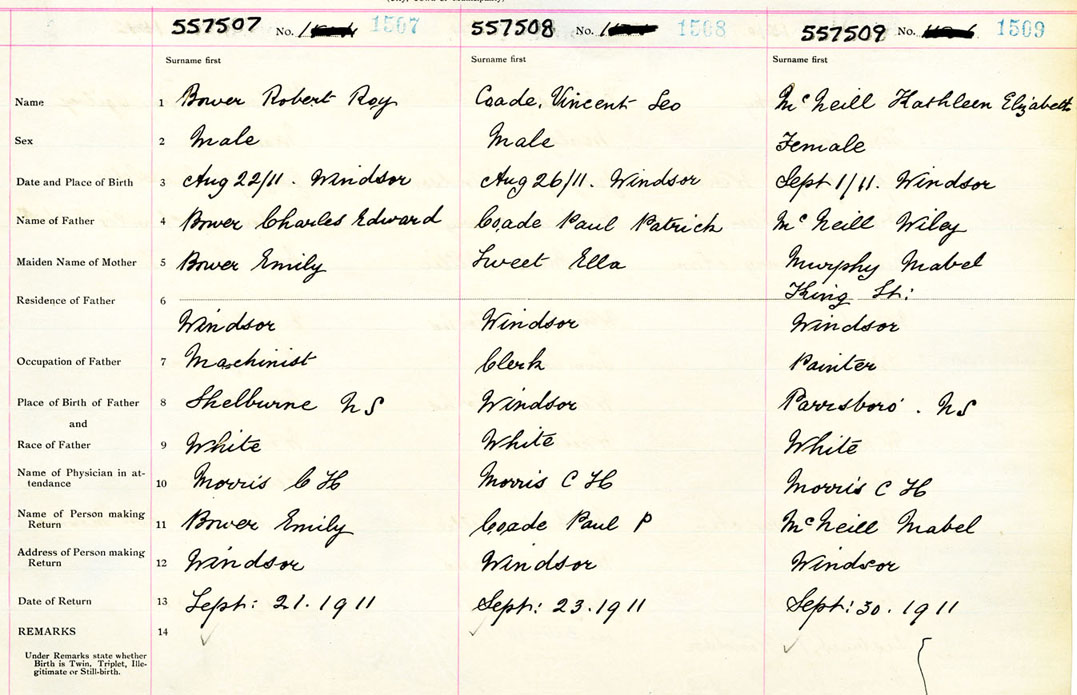 557507 No. 1507 557508 No. 1508 557509 No. 1509
Surname first Surname first Surname first
Name 1 Bower Robert Roy Coade, Vincent Leo McNeill Kathleen Elizabeth
Sex 2 Male Male Female
Date and Place of Birth 3 Aug 22/11. Windsor Aug 26/11. Windsor Sept 1/11. Windsor
Name of Father 4 Bower Charles Edward Coade Paul Patrick McNeill Wiley
Maiden Name of Mother 5 Bower Emily Sweet Ella Murphy Mabel
Residence of Father 6 King St:
Windsor Windsor Windsor
Occupation of Father 7 Machinist Clerk Painter
Place of Birth of Father 8 Shelburne NS Windsor Parrsboro. NS
and
Race of Father 9 White White White
Name of Physician in at-
tendance 10 Morris C H Morris C H Morris C H
Name of Person making
Return 11 Bower Emily Coade Paul P McNeill Mabel
Address of Person making
Return 12 Windsor Windsor Windsor
Date of Return 13 Sept: 21. 1911 Sept: 23. 1911 Sept: 30. 1911
REMARKS 14
Under Remarks state whether
Birth is Twin, Triplet, Ille-
gitimate or Still-birth.